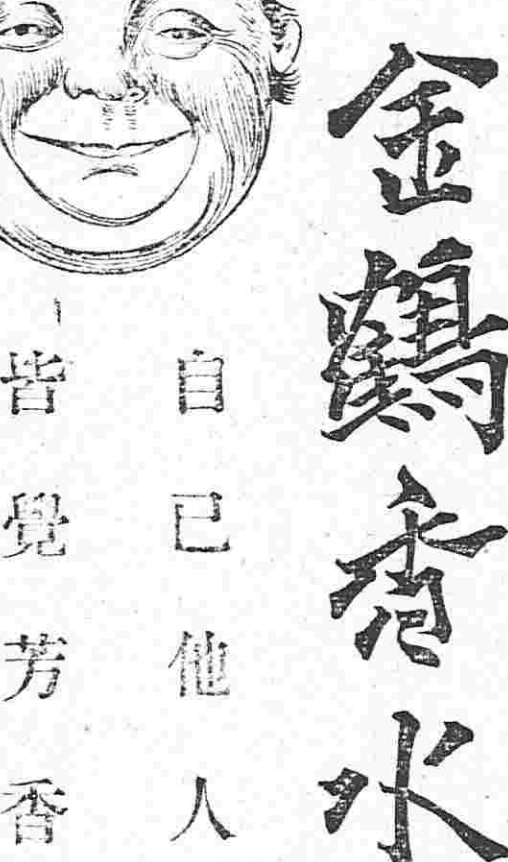 金鶴香水
自己他人
皆覺芳香